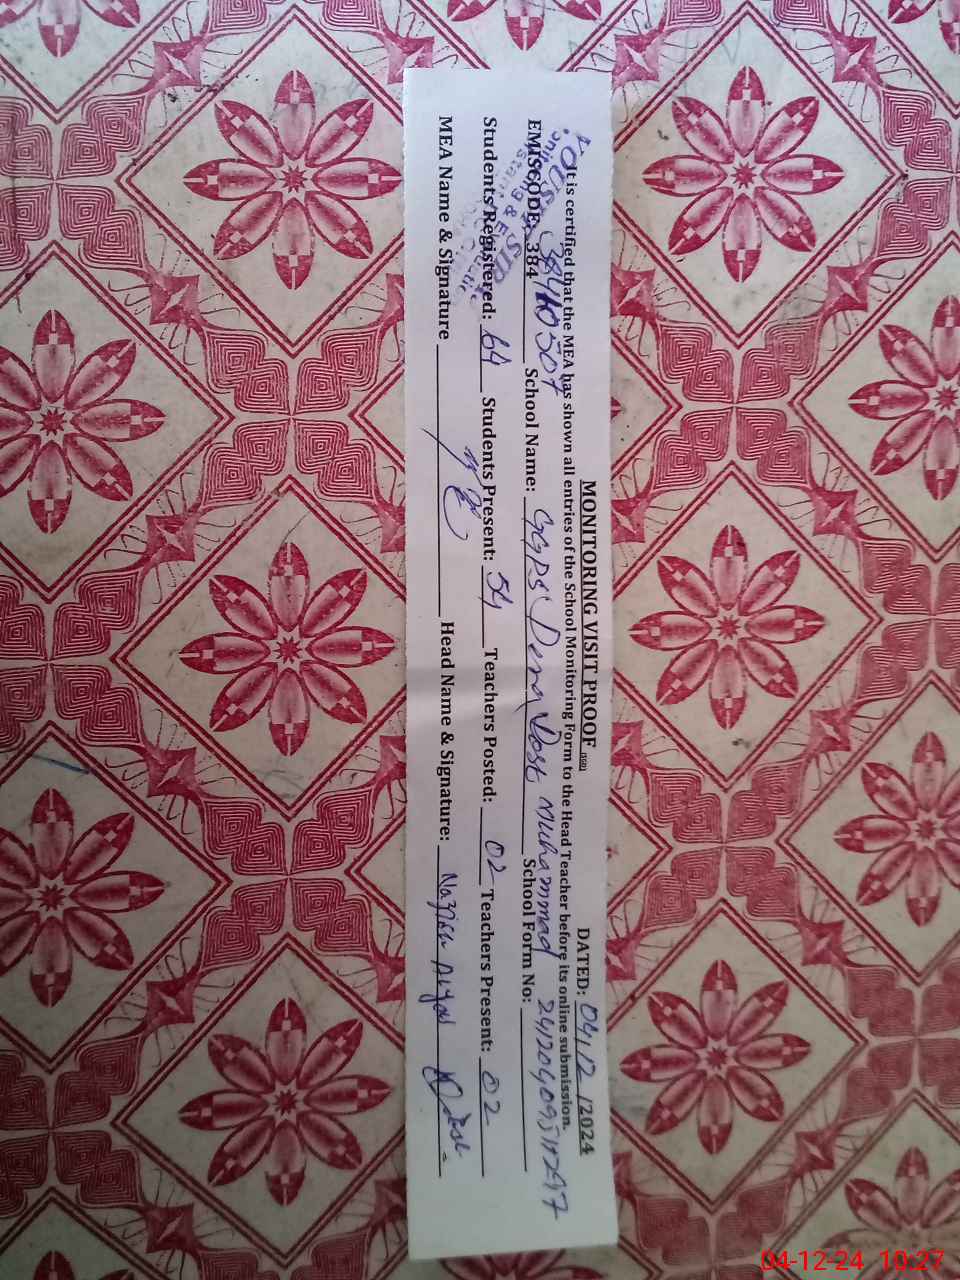 MONITORING VISIT PROOF (ISGD) DATED: 04/12/2024
It is certified that the MEA has shown all entries of the School Monitoring Form to the Head Teacher before its online submission.
EMISCODE: 384 School Name: GGPS Dera Dost Muhammad School Form No:
Students Registered: 64 Students Present: 54 Teachers Posted: 02 Teachers Present: 02
MEA Name & Signature Head Name & Signature:
04-12-24 10:27